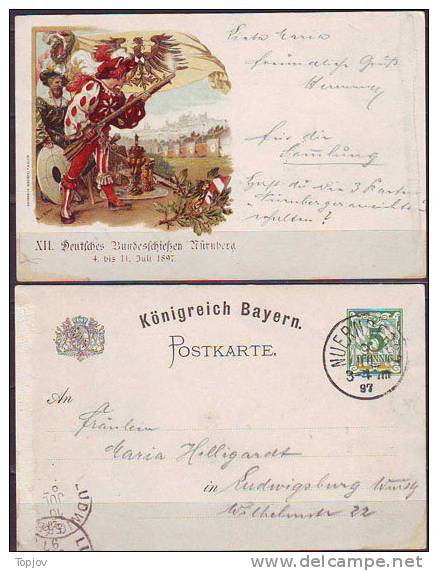 Liebe Maria
freundliche Grüß
Hermann
für die
Sammlung
Hast du die 3 Karten
Nürnberg
erhalten?
XII. Deutsches Bundesschießen Nürnberg
4. bis 11. Juli 1897.
Königreich Bayern.
POSTKARTE.
5
PFENNIG
NUERN
3-4 Nm
97
An
Fräulein
Maria Helligardt
in Ludwigsburg Württbg
Wilhelmstr 22
LUDW
10
JUL
97
Topjov
www.delcampe.net